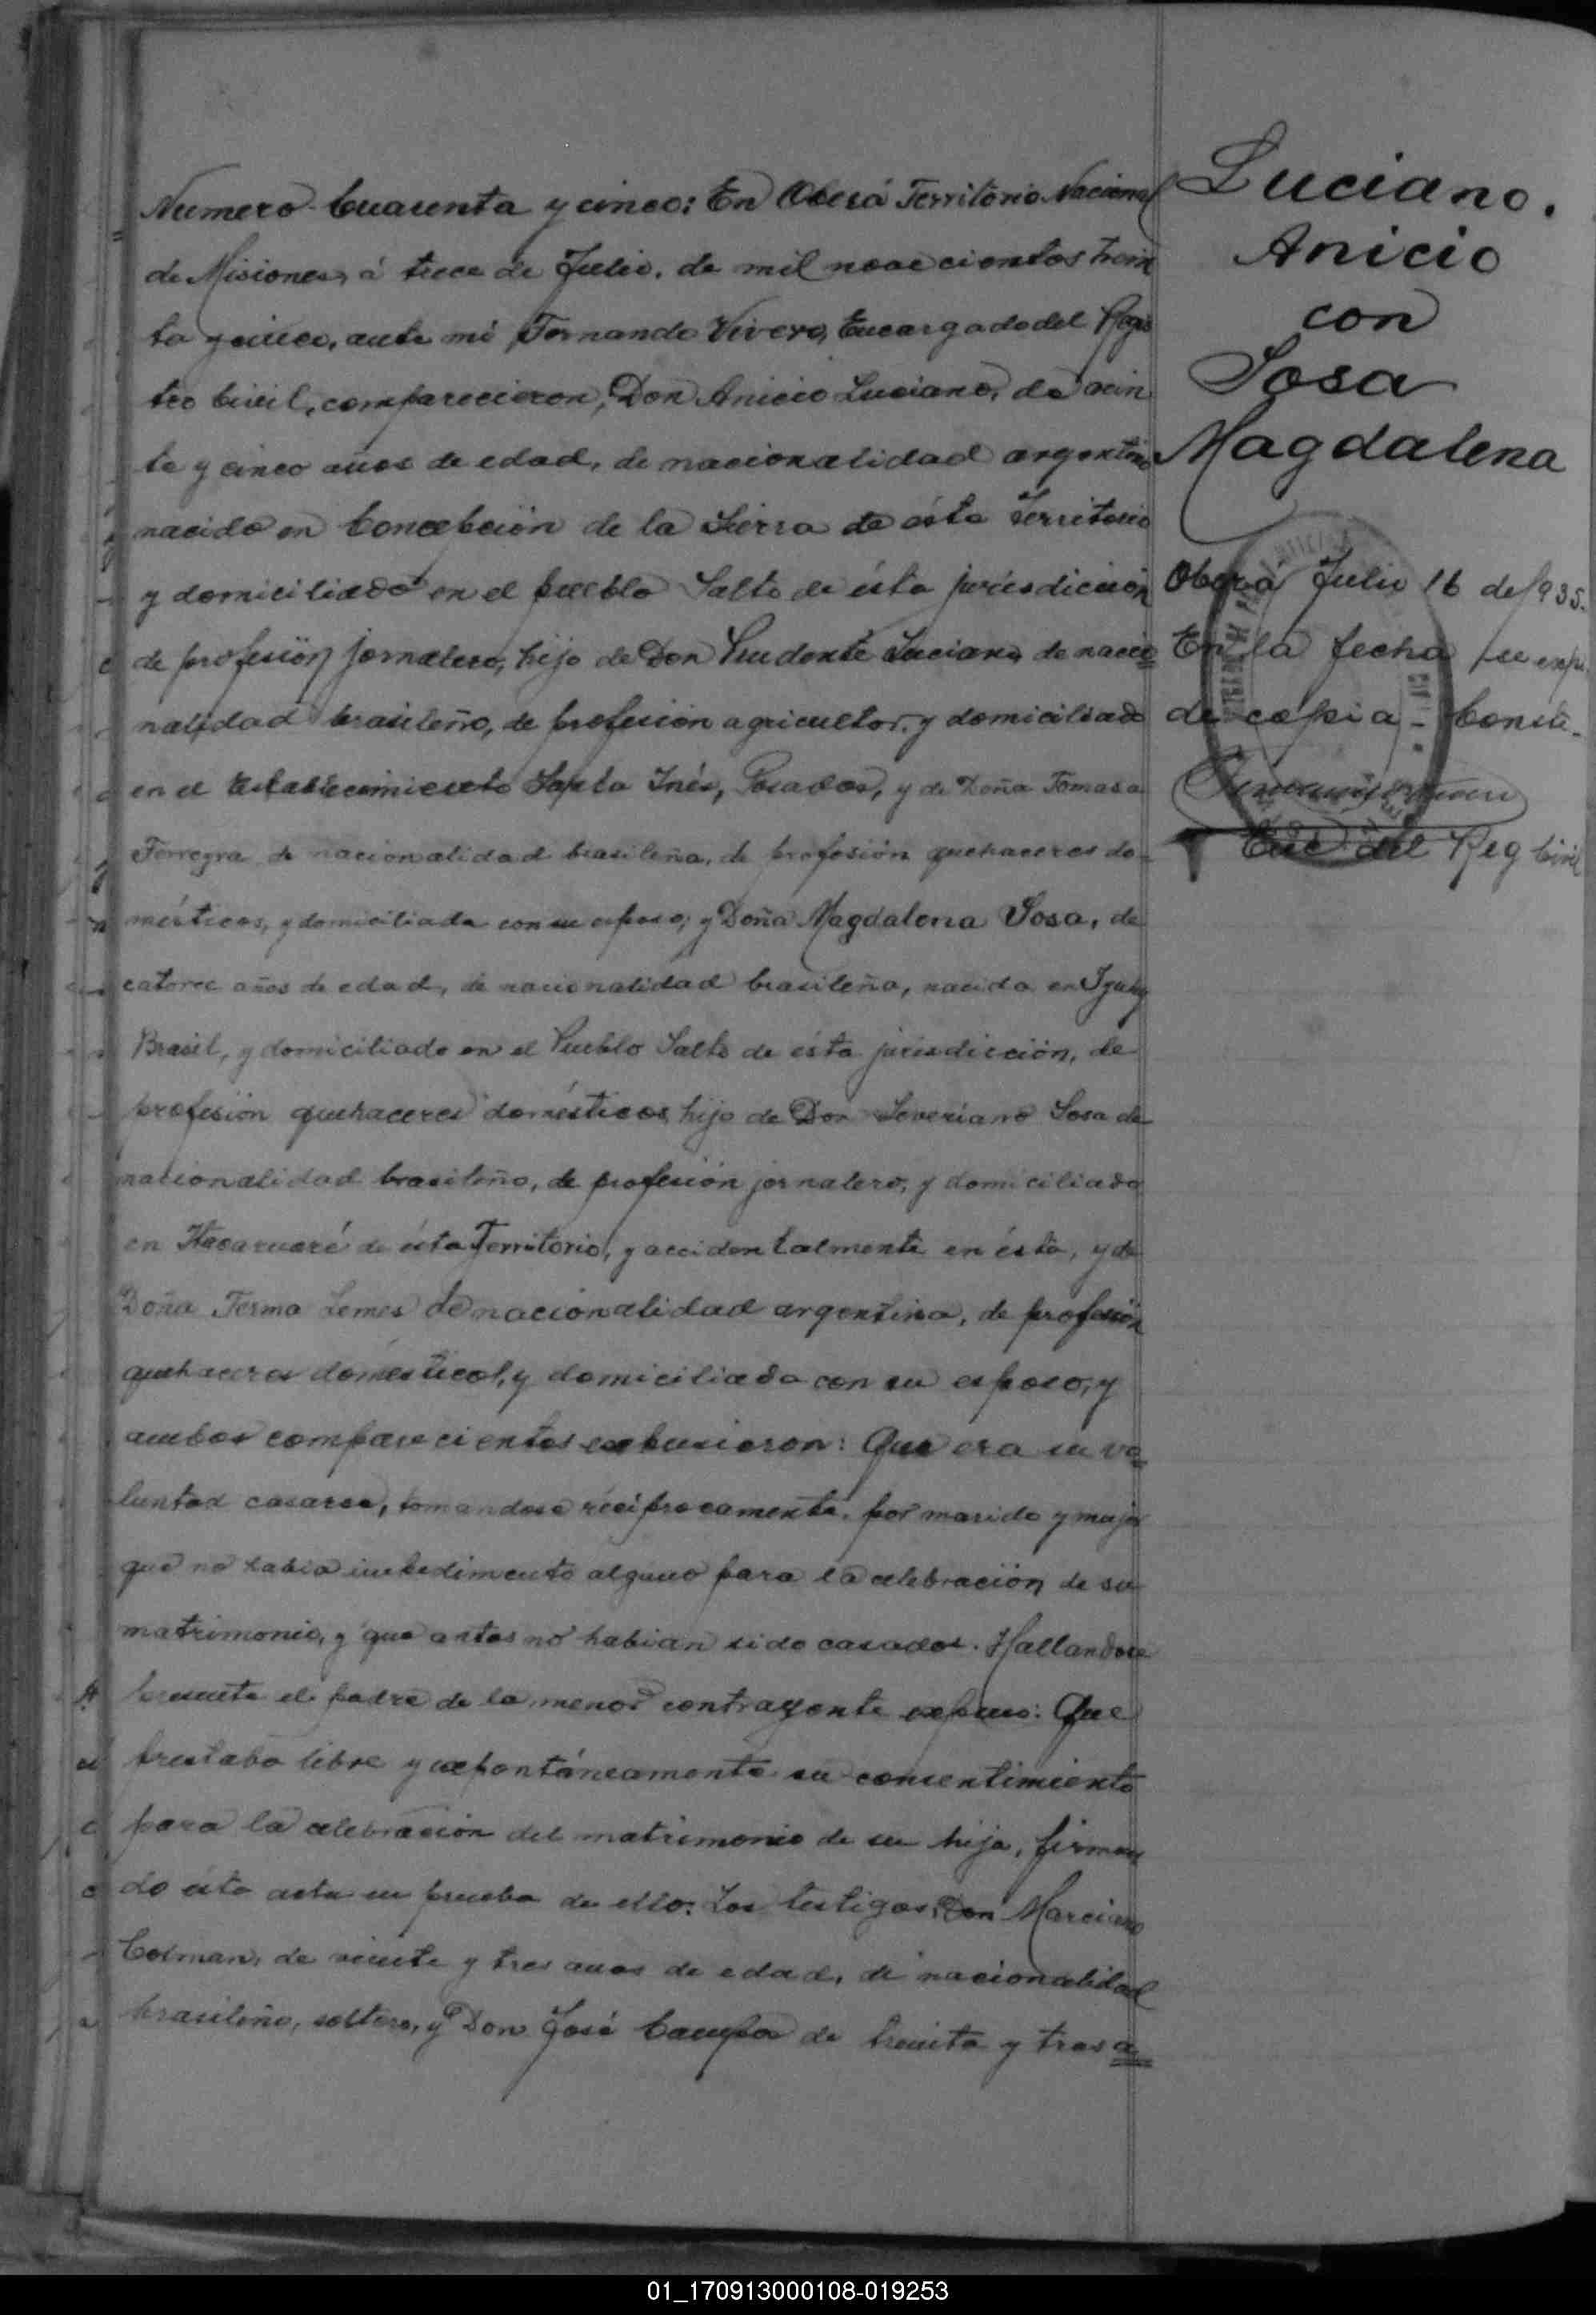 Numero Cuarenta y cinco: En Oberá Territorio Nacional
de Misiones, á trece de Julio, de mil novecientos trein
ta y cinco, ante mí Fernando Vivero, Encargado del Regis
tro Civil, comparecieron, Don Anicio Luciano, de vein
te y cinco años de edad, de nacionalidad argentino
nacido en Concepción de la Sierra de ésta Territorio
y domiciliado en el pueblo Salto de ésta jurisdicción
de profesión jornalero, hijo de Don Prudente Luciano, de nacio
nalidad brasileño, de profesión agricultor, y domiciliado
en el establecimiento Santa Inés, Posadas, y de Doña Tomasa
de nacionalidad brasileña, de profesión quehaceres do=
mésticos, y domiciliada con su esposo; y Doña Magdalena Sosa, de
catorce años de edad, de nacionalidad brasileña, nacida en
Brasil, y domiciliado en el Pueblo Salto de ésta jurisdicción, de
profesión quehaceres domésticos, hijo de Don Severiano Sosa de
nacionalidad brasileño, de profesión jornalero, y domiciliado
en Itacaruaré de ésta Territorio, y accidentalmente en ésta, y de
Doña Lemes de nacionalidad argentina, de profesión
quehaceres domésticos, y domiciliada con su esposo, y
ambos comparecientes expusieron: Que era su vo=
luntad casarse, tomandose recíprocamente, por marido y mujer
que no habia impedimento alguno para la celebración de su
matrimonio, y que antes no habian sido casados. Hallandose
presente el padre de la menor contrayente expuso: Que
prestaba libre y espontáneamente su consentimiento
para la celebración del matrimonio de su hija, firman
do ésta acta en prueba de ello. Los testigos, Don Marciano
Colman, de veinte y tres años de edad, de nacionalidad
brasileño, soltero, y Don José de treinta y tres a
Luciano.
Anicio
con
Sosa
Magdalena
Oberá Julio 16 de 1935.
En la fecha se expi
de copia - Conste.
Enc del Reg Civil
01_170913000108-019253